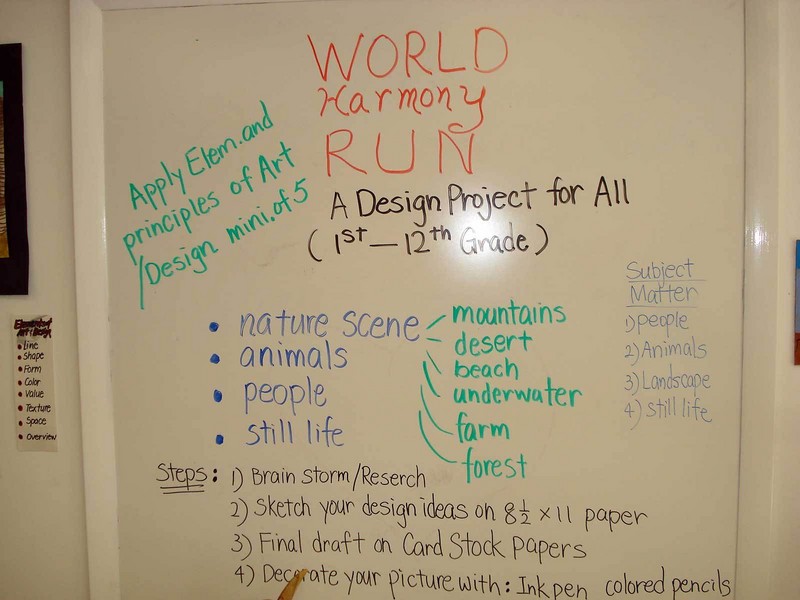 WORLD
Harmony
RUN
Apply Elem.and
principles of Art
/Design mini.of 5
A Design Project for All
(1ST—12th Grade)
• nature scene
• animals
• people
• still life
mountains
desert
beach
underwater
farm
forest
Subject
Matter
1) people
2) Animals
3) Landscape
4) still life
Steps: 1) Brain storm/Reserch
2) Sketch your design ideas on 8 1/2 x 11 paper
3) Final draft on Card Stock Papers
4) Decorate your picture with: Ink pen colored pencils
• Line
• Shape
• Form
• Color
• Value
• Texture
• Space
• Overview